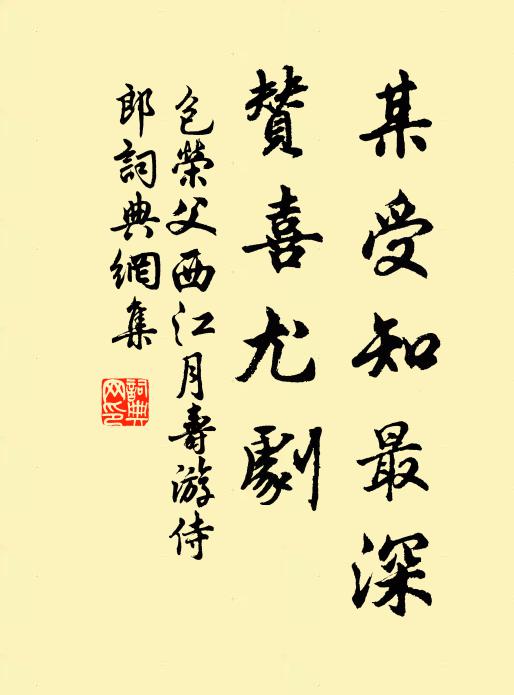 某受知最深
赞喜尤劇
包榮父西江月壽游侍
郎詞典網集
詞典
网印